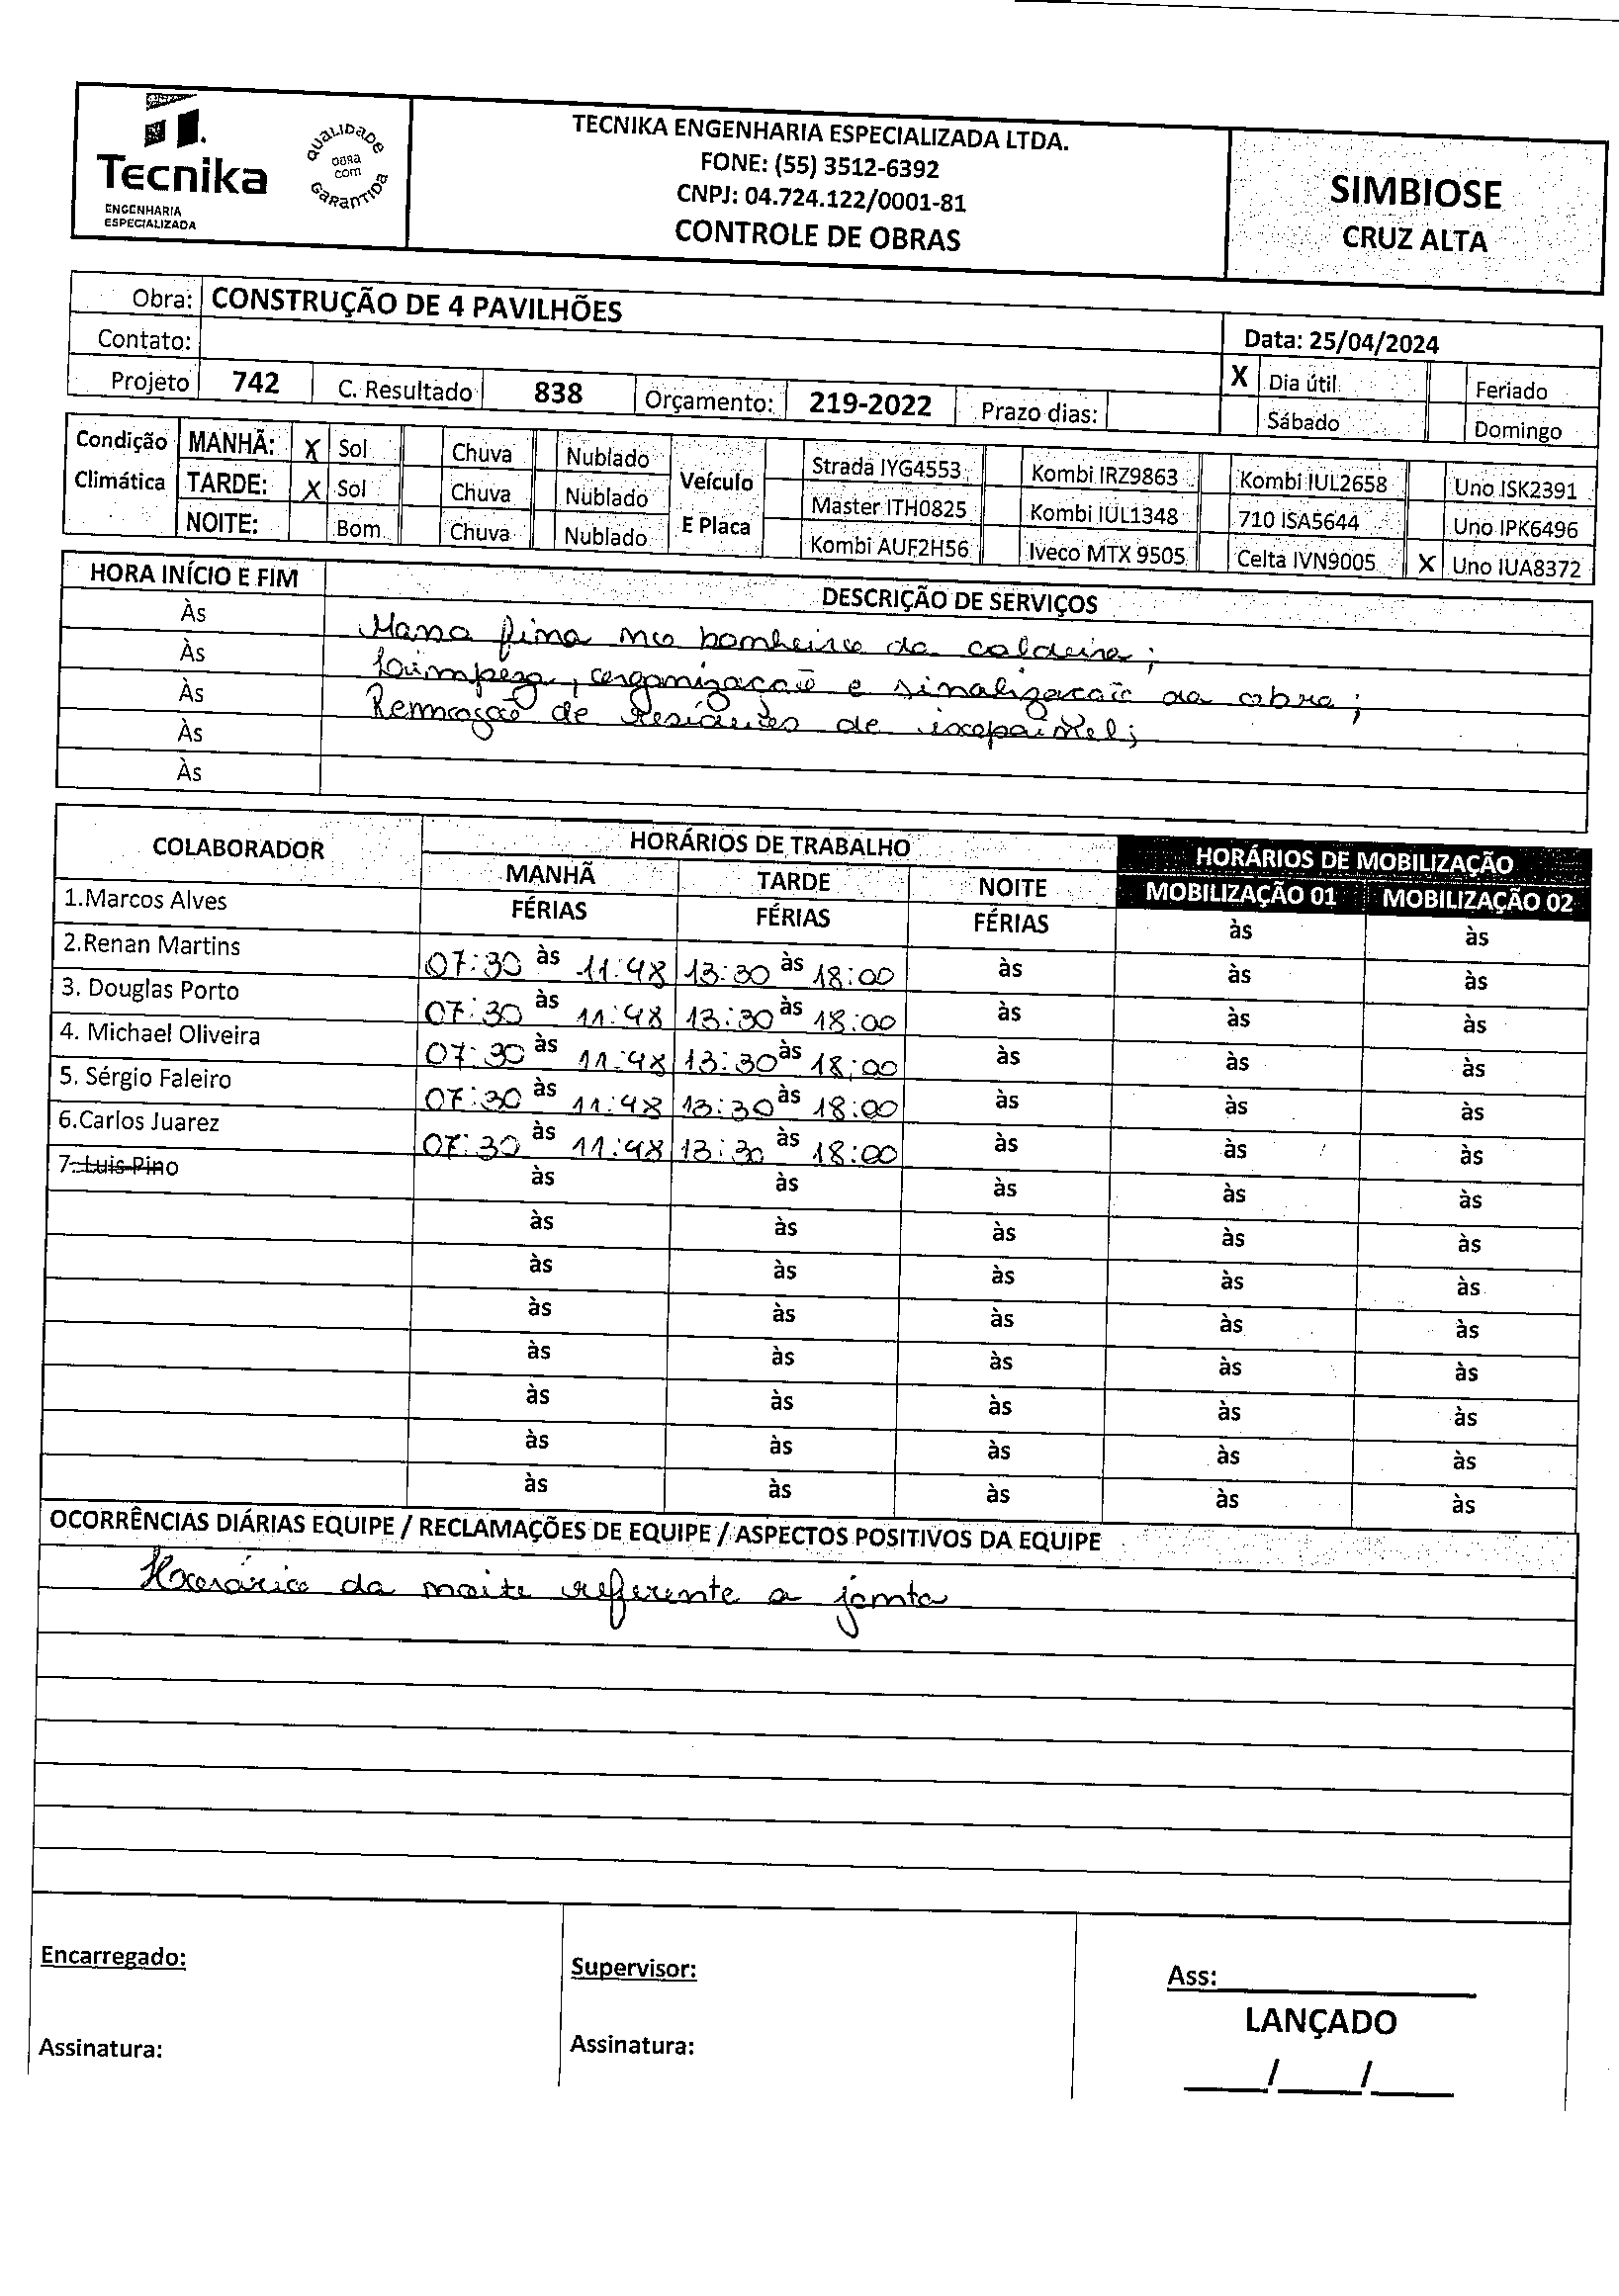 Tecnika
ENGENHARIA
ESPECIALIZADA
QUALIDADE
OBRA
COM
GARANTIDA
TECNIKA ENGENHARIA ESPECIALIZADA LTDA.
FONE: (55) 3512-6392
CNPJ: 04.724.122/0001-81
CONTROLE DE OBRAS
SIMBIOSE
CRUZ ALTA
Obra: CONSTRUÇÃO DE 4 PAVILHÕES
Contato:
Data: 25/04/2024
Projeto 742 C. Resultado 838 Orçamento: 219-2022 Prazo dias:
X Dia útil Feriado
Sábado Domingo
Condição Climática
MANHÃ: X Sol Chuva Nublado
TARDE: X Sol Chuva Nublado
NOITE: Bom Chuva Nublado
Veículo E Placa
Strada IYG4553 Kombi IRZ9863 Kombi IUL2658 Uno ISK2391
Master ITH0825 Kombi IUL1348 710 ISA5644 Uno IPK6496
Kombi AUF2H56 Iveco MTX 9505 Celta IVN9005 X Uno IUA8372
HORA INÍCIO E FIM DESCRIÇÃO DE SERVIÇOS
Às Massa fina no banheiro da caldeira;
Às Limpeza, organização e sinalização da obra;
Às Remoção de Resíduos de isopainel;
Às
Às
COLABORADOR HORÁRIOS DE TRABALHO HORÁRIOS DE MOBILIZAÇÃO
MANHÃ TARDE NOITE MOBILIZAÇÃO 01 MOBILIZAÇÃO 02
1.Marcos Alves FÉRIAS FÉRIAS FÉRIAS às às
2.Renan Martins 07:30 às 11:48 13:30 às 18:00 às às às
3. Douglas Porto 07:30 às 11:48 13:30 às 18:00 às às às
4. Michael Oliveira 07:30 às 11:48 13:30 às 18:00 às às às
5. Sérgio Faleiro 07:30 às 11:48 13:30 às 18:00 às às às
6.Carlos Juarez 07:30 às 11:48 13:30 às 18:00 às às às
7. Luis Pino às às às às às
às às às às às
às às às às às
às às às às às
às às às às às
às às às às às
às às às às às
às às às às às
OCORRÊNCIAS DIÁRIAS EQUIPE / RECLAMAÇÕES DE EQUIPE / ASPECTOS POSITIVOS DA EQUIPE
Horário da noite referente a janta
Encarregado:
Supervisor:
Ass:
LANÇADO
Assinatura:
Assinatura:
___/___/___